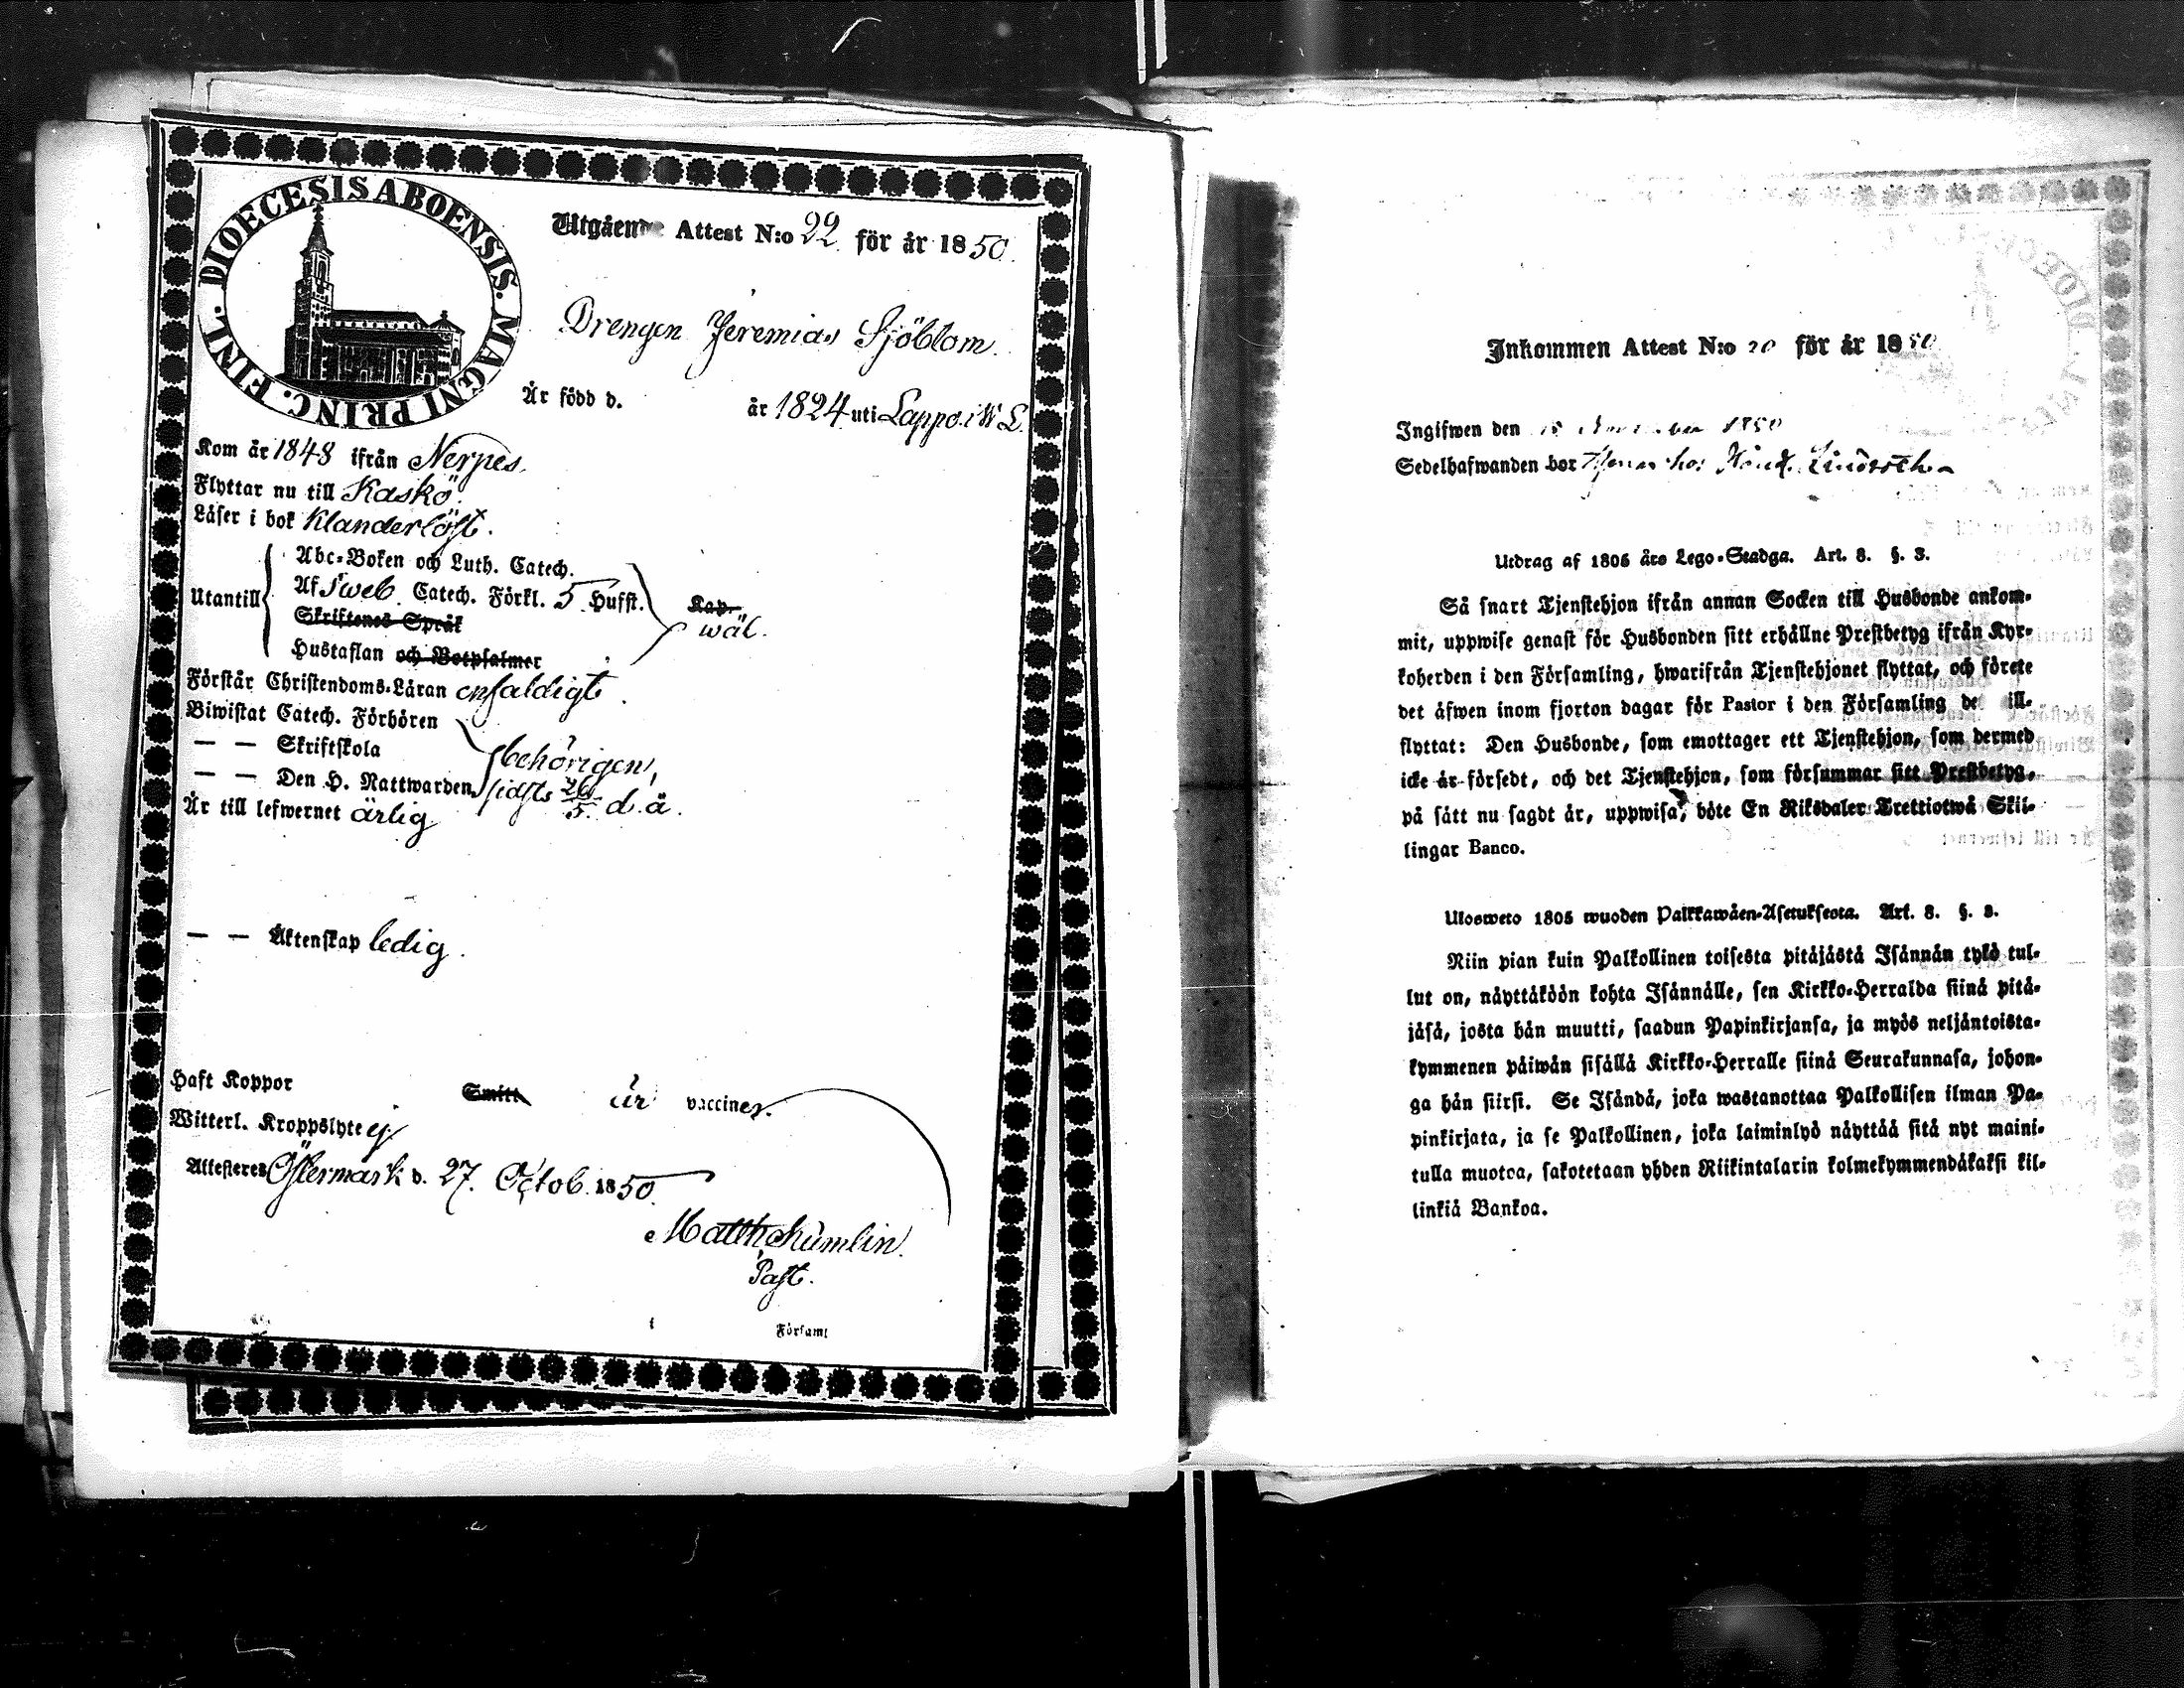 DIOECESIS ABOENSIS. MAGNI PRINC. FINL.
Utgående Attest N:o 22 för år 1850.
Drengen Jeremias Sjöblom.
Är född d. år 1824 uti Lappo i W. L.
Kom år 1848 ifrån Nerpes.
Flyttar nu till Kaskö.
Läser i bok klanderlöst.
Utantill
Abc-Boken och Luth. Catech.
Af Sweb. Catech. Förkl. 5 Hufst.
Skriftenes Språk
Hustaflan och Botpsalmer
Kap.
wäl.
Förstår Christendoms-Läran enfaldigt.
Biwistat Catech. Förhören
— — Skriftskola
— — Den H. Nattwarden
behörigen,
sidsts 26/5. d. å.
Är till lefwernet ärlig
— — Äktenskap ledig.
Haft Koppor Smitt är vacciner.
Witterl. Kroppslyte ej
Attesteres Östermark d. 27. Octob. 1850.
Matth Humlin.
Past.
i Församl
Inkommen Attest N:o 20 för år 1850
Ingifwen den 1850
Sedelhafwanden bor hos
Utdrag af 1805 års Lego-Stadga. Art. 8. §. 3.
Så snart Tjenstehjon ifrån annan Socken till Husbonde ankom-
mit, uppwise genast för Husbonden sitt erhållne Prestbetyg ifrån Kyr-
koherden i den Församling, hwarifrån Tjenstehjonet flyttat, och förete
det äfwen inom fjorton dagar för Pastor i den Församling de ill-
flyttat: Den Husbonde, som emottager ett Tjenstehjon, som dermed
icke är försedt, och det Tjenstehjon, som försummar sitt Prestbetyg,
på sätt nu sagdt är, uppwisa, böte En Riksdaler Trettiotwå Skil-
lingar Banco.
Ulosweto 1805 wuoden Palkkawäen-Asetuksesta. Art. 8. §. 3.
Niin pian kuin Palkollinen toisesta pitäjästä Isännän tykö tul-
lut on, näyttäköön kohta Isännälle, sen Kirkko-Herralda siinä pitä-
jäsä, josta hän muutti, saadun Papinkirjansa, ja myös neljäntoista-
kymmenen päiwän sisällä Kirkko-Herralle siinä Seurakunnasa, johon-
ga hän siirsi. Se Isändä, joka wastanottaa Palkollisen ilman Pa-
pinkirjata, ja se Palkollinen, joka laiminlyö näyttää sitä nyt maini-
tulla muotoa, sakotetaan yhden Riikintalarin kolmekymmendäkaksi kil-
linkiä Bankoa.